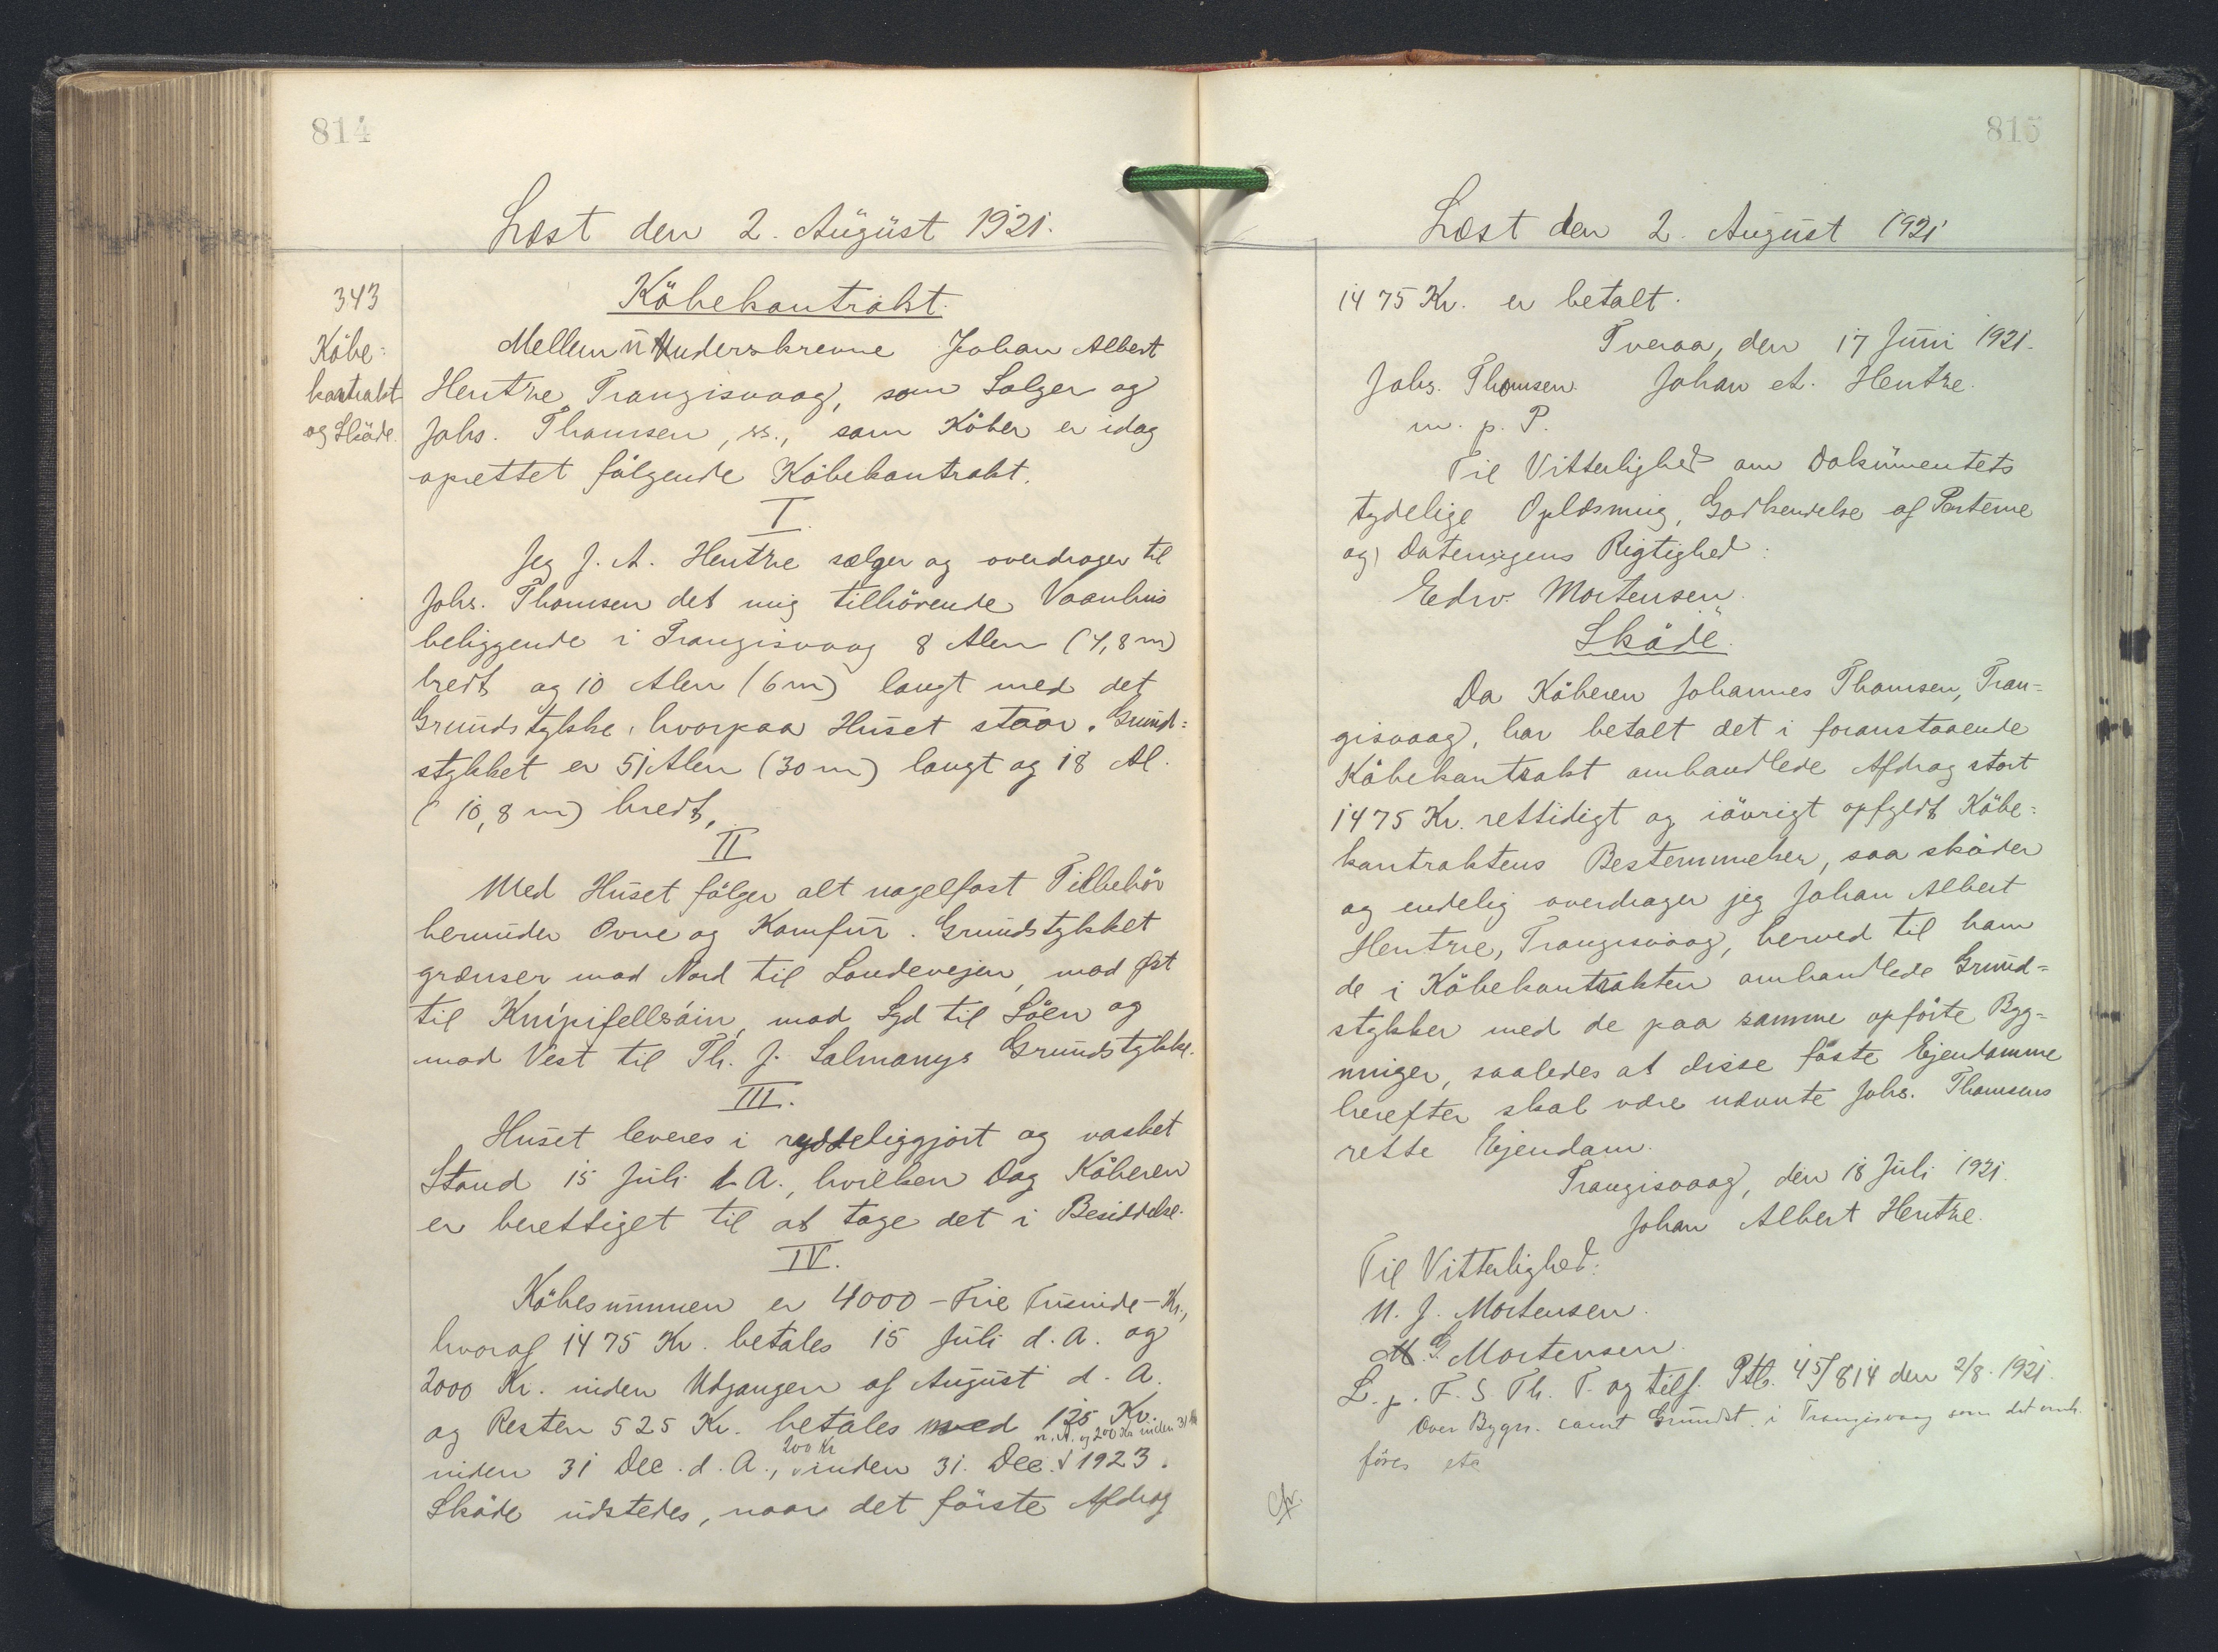 814
Læst den 2. August 1921.
343
Köbe=
kontrakt
og Sköde.
Köbekontrakt.
Mellem Underskrevne Johan Albert
Hentze Trangisvaag, som Sælger og
Johs. Thomsen, ss., som Köber er idag
oprettet fölgende Köbekontrakt.
I.
Jeg J. A. Hentze sælger og overdrager til
Johs. Thomsen det mig tilhörende Vaanhus
beliggende i Trangisvaag 8 Alen (4,8 m)
bredt og 10 Alen (6 m) langt med det
Grundstykke, hvorpaa Huset staar. Grund=
stykket er 51 Alen (30 m) langt og 18 Al.
(10,8 m) bredt.
II
Med Huset fölger alt nagelfast Tilbehör
herunder Ovne og Komfur. Grundstykket
grænser mod Nord til Landevejen, mod Øst
til Knípifellsáin, mod Syd til Söen og
mod Vest til Th. J. Salmanys Grundstykke.
III.
Huset leveres i ryddeliggjort og vasket
Stand 15 Juli d. A., hvilken Dag Köberen
er berettiget til at tage det i Besiddelse.
IV.
Köbesummen er 4000 - Fire Tusinde - Kr.,
hvoraf 1475 Kr. betales 15 Juli d. A. og
2000 Kr. inden Udgangen af August d. A.
og Resten 525 Kr. betales med 125 Kr.
n. A. og 200 Kr inden 31
200 Kr
inden 31 Dec. d. A., inden 31. Dec. 1923.
Sköde udstedes, naar det förste Afdrag
815
Læst den 2. August 1921
1475 Kr. er betalt.
Tveraa, den 17 Juni 1921.
Johs. Thomsen. Johan A. Hentze.
m. p. P.
Til Vitterlighed om Dokumentets
tydelige Oplæsning, Godkendelse af Parterne
og Dateringens Rigtighed:
Edw. Mortensen.
Sköde.
Da Köberen Johannes Thomsen, Tran=
gisvaag, har betalt det i foranstaaende
Köbekontrakt omhandlede Afdrag stort
1475 Kr. rettidigt og iövrigt opfyldt Köbe=
kontraktens Bestemmelser, saa sköder
og endelig overdrager jeg Johan Albert
Hentze, Trangisvaag, herved til ham
de i Köbekontrakten omhandlede Grund=
stykker med de paa samme opförte Byg=
ninger, saaledes at disse faste Ejendomme
herefter skal være nævnte Johs. Thomsens
rette Ejendom.
Trangisvaag, den 18 Juli 1921.
Johan Albert Hentze.
Til Vitterlighed:
N. J. Mortensen.
M. G. Mortensen.
L. p. F. S. Th. T. og tilf. Ptb. 45/814 den 2/8. 1921.
Over Bygn. samt Grundst. i Trangisvaag som det omh.
föres etc
Cfr.